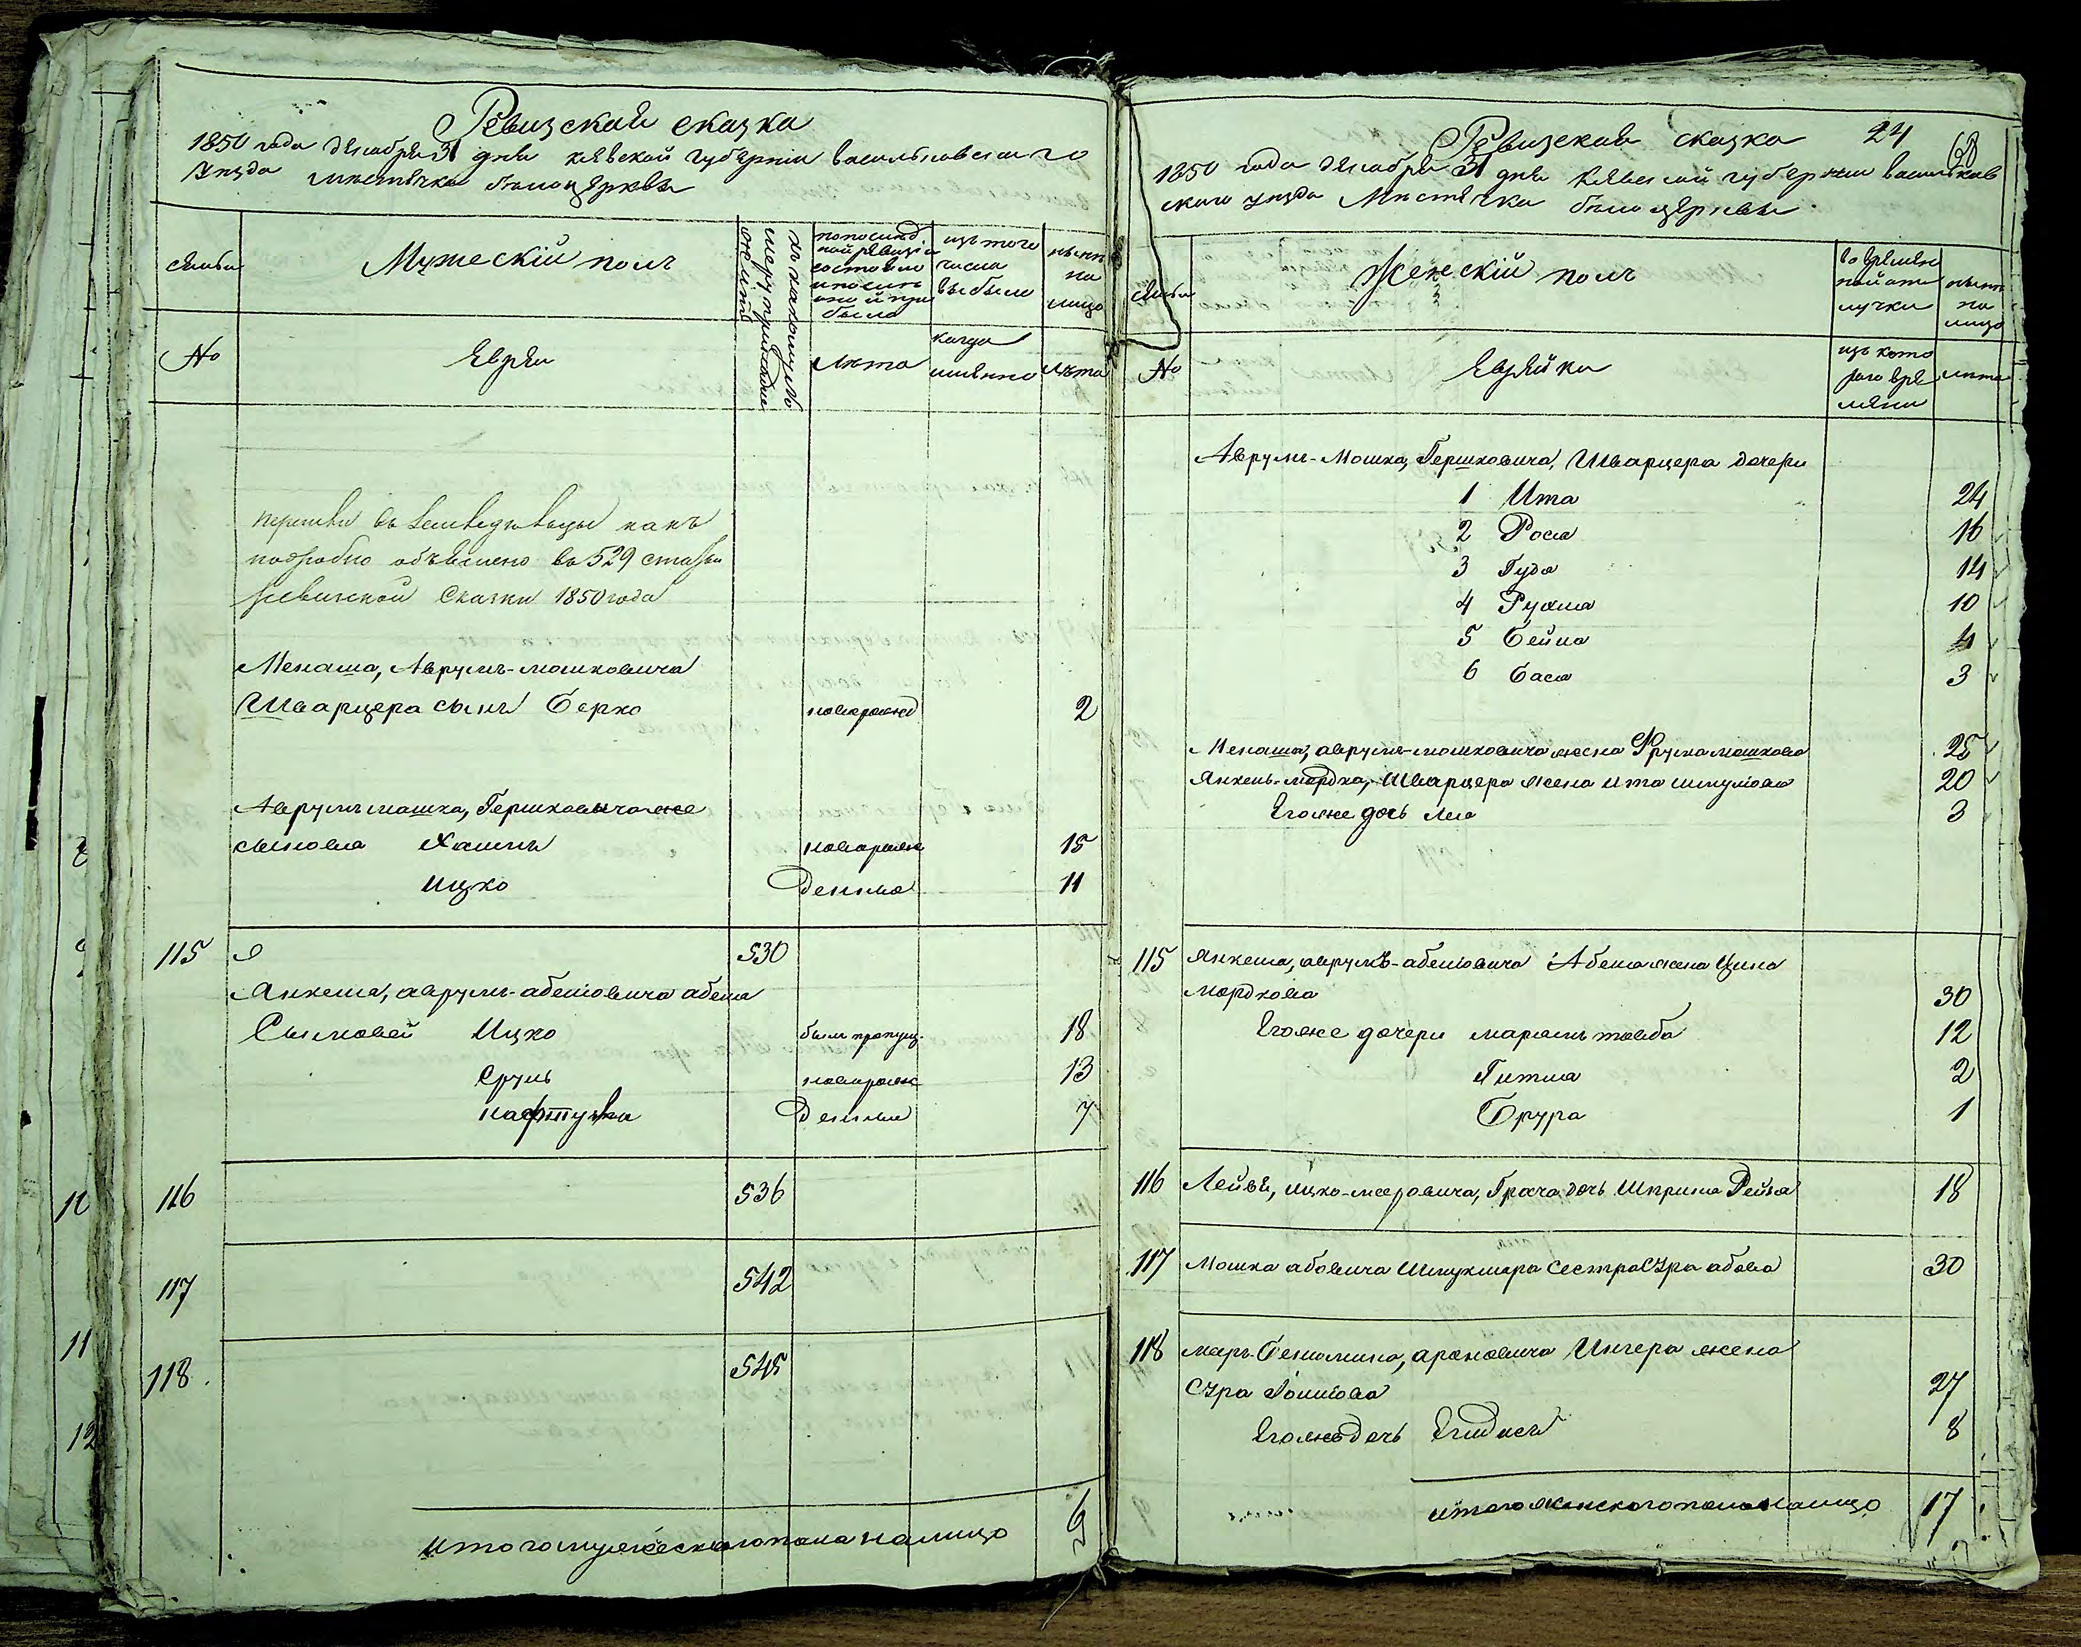 Ревизская сказка
1850 года декабря 31 дня киевской губернии васильковскаго
уезда местечка белоцеркви
семьи
Мужескiй полъ
по последней ревизiи состояло и после оной прибыло
изъ того числа выбыло
ныне на лицо
№
Евреи
лета
когда именно
лета
перешли въ земледельцы какъ
подробно объяснено въ 529 статьи
ревизской сказки 1850 года
Менаша, Аврумъ-мошковича
Шварцера сынъ Берко новорожд 2
Аврумъ мошка, Гершковича же
сыновья Хаимъ новорожж 15
Ицко денные 11
115 530
Янкеля, аврумъ-абелiовича абеля
Сыновей Ицко былъ пропущ. 18
Сруль новорожж 13
нафтула денные 7
116 536
117 542
118. 545
итого мужескаго пола налицо 6
24
68
Ревизская сказка
1850 года декабря 31 дня Киевской губернии васильков
скаго уезда Местечка белоцеркви
семьи
Женскiй полъ
во временной отлучки
ныне на лицо
№
Еврейки
изъ котораго времени
лета
Аврумъ-Мошка, Гершковича, Шварцера дочери
1 Ита 24
2 Рося 16
3 Гудя 14
4 Рухля 10
5 Бейла 4
6 Бася 3
Менаша, аврумъ-мошковича жена Фрума мошкова 25
Янкель-мордка, Шварцера жена Ита шмулова 20
Его же дочь Лея 3
115 Янкеля, аврумъ-абелiовича Абеля жена Ципа
мордкова 30
Его же дочери мариамъ тоиба 12
Гитля 2
Брура 1
116 Лейбы, ицко-мееровича, Грача дочь Шпринца Рейза 18
117 Мошка абовича Шмуклера сестра Сура абова 30
118 меер-бениамина, ароновича Ингера жена
Сура Iоилiова 27
Его же дочь Егидисъ 8
итого женскаго пола налицо 17